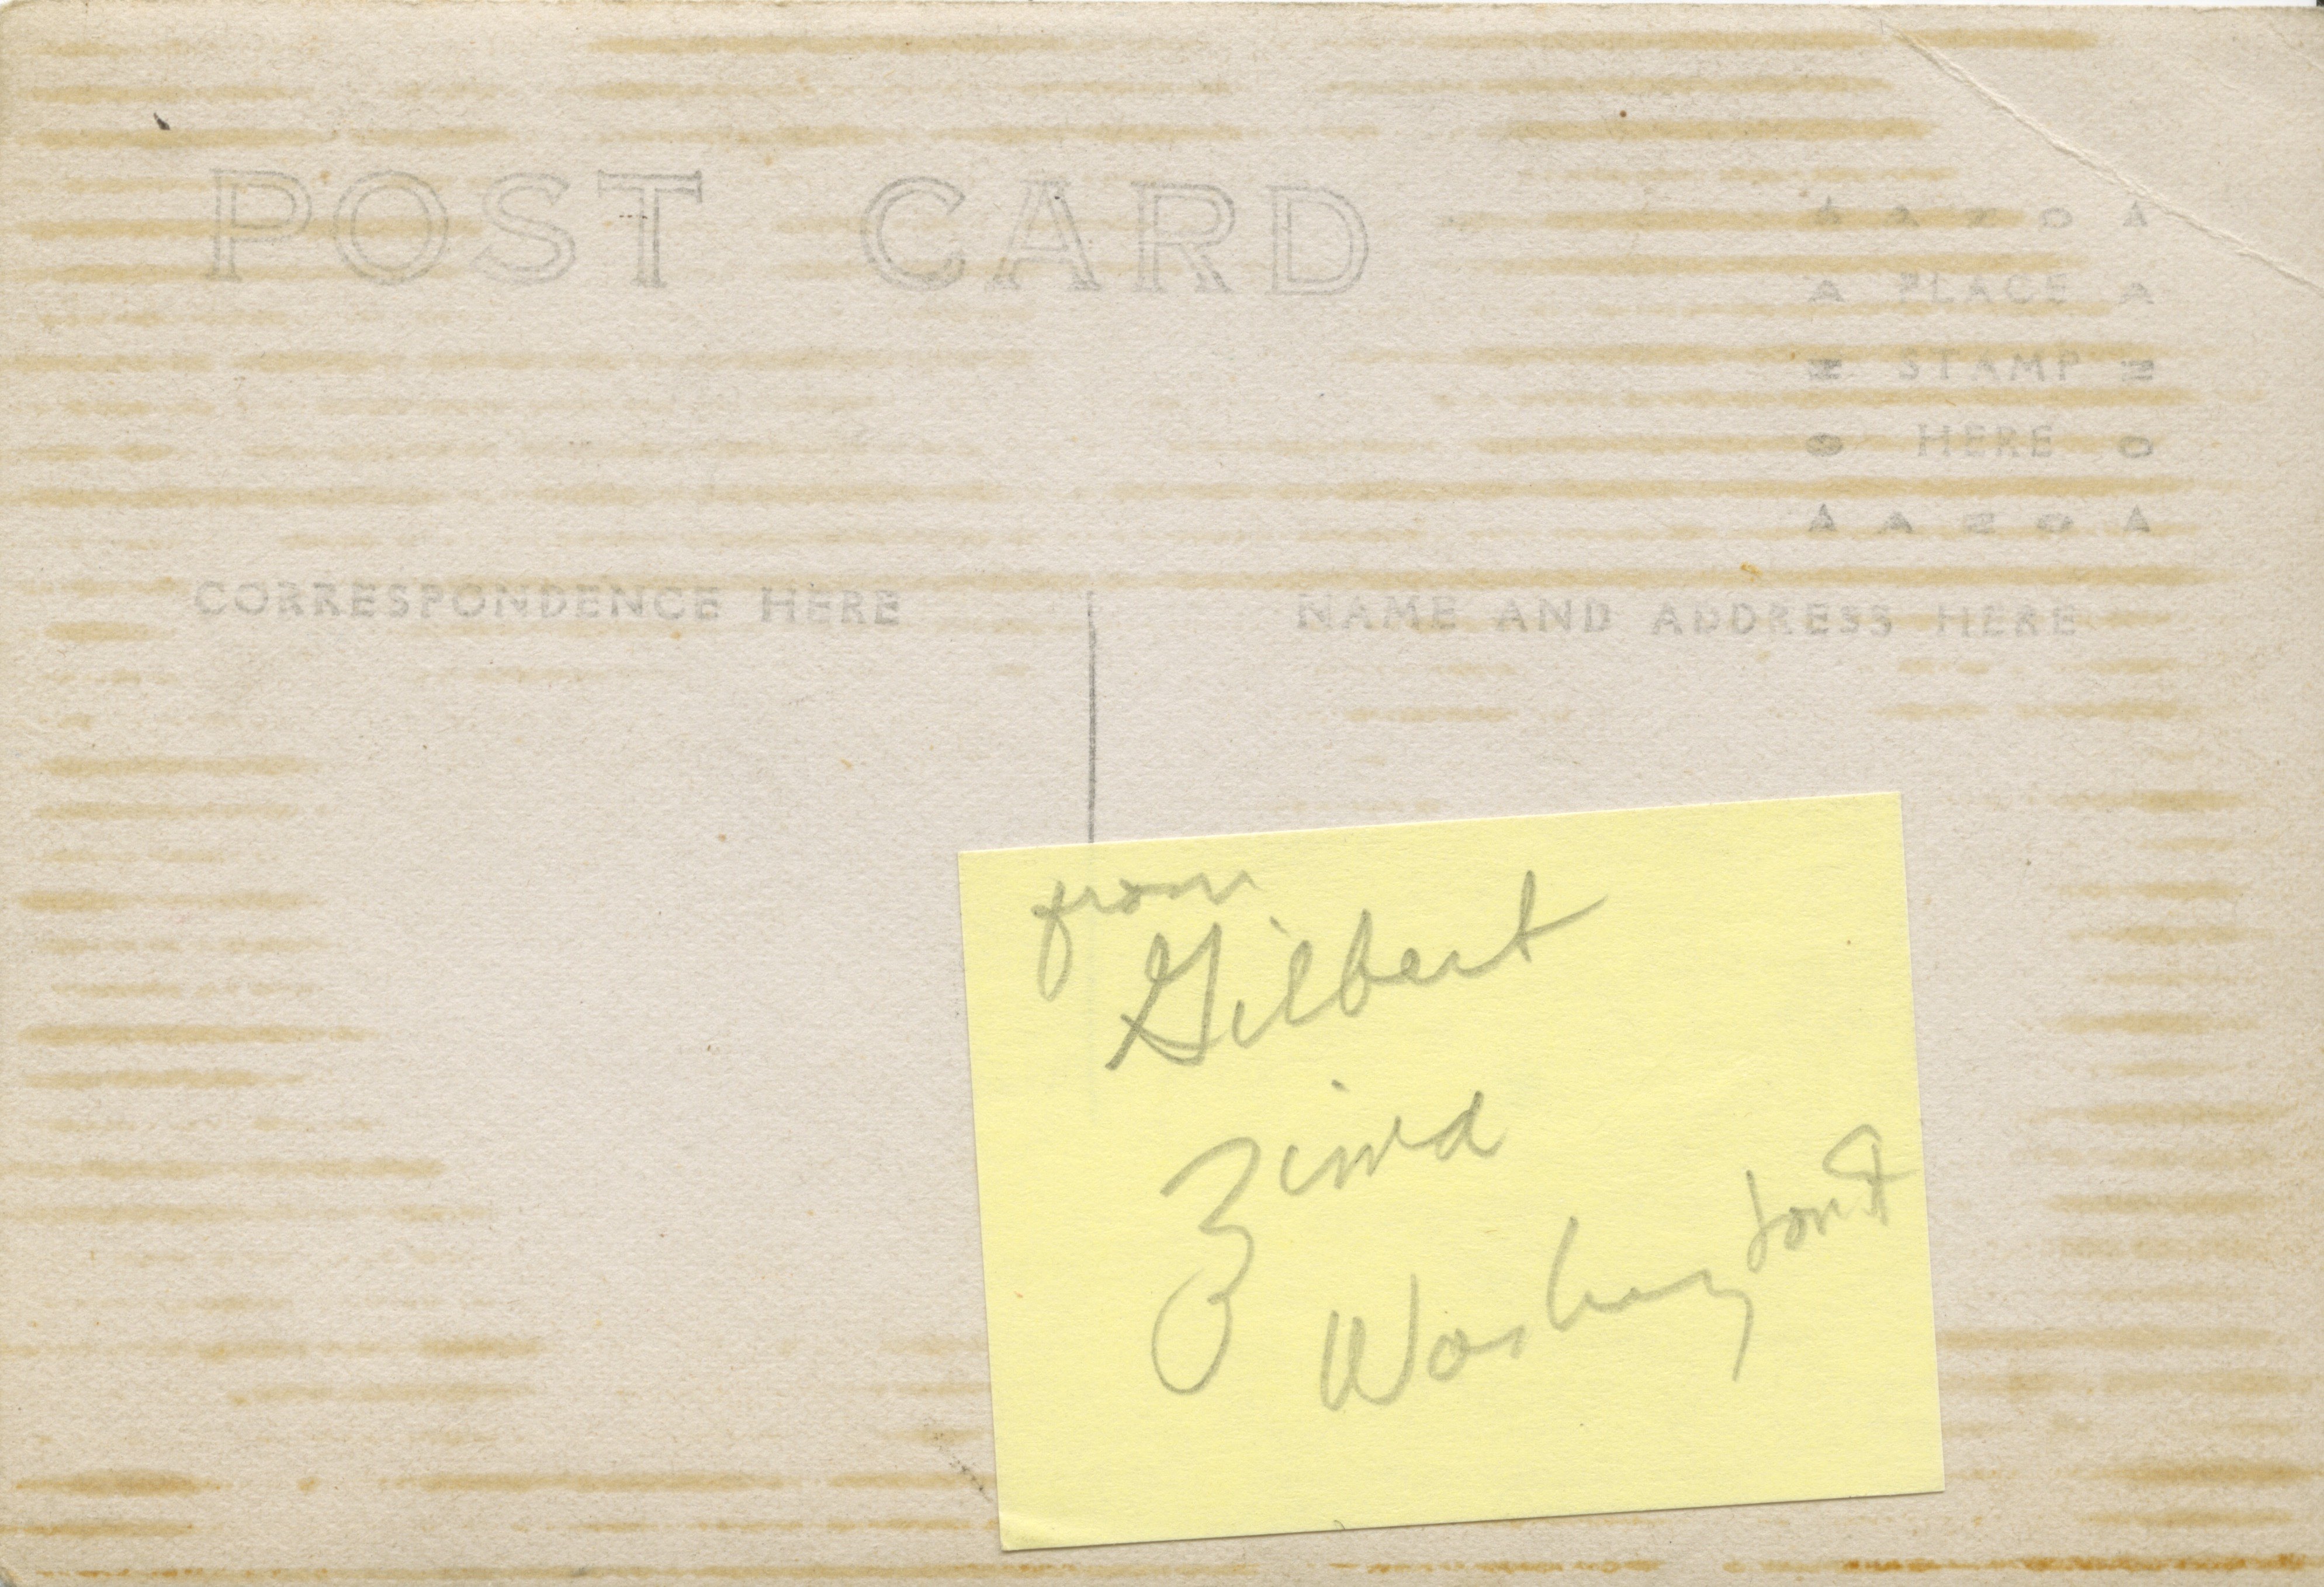 POST CARD
▲ A Z O ▲
A PLACE A
Z STAMP Z
O HERE O
▲ A Z O ▲
CORRESPONDENCE HERE
NAME AND ADDRESS HERE
from
Gilbert
Washington St